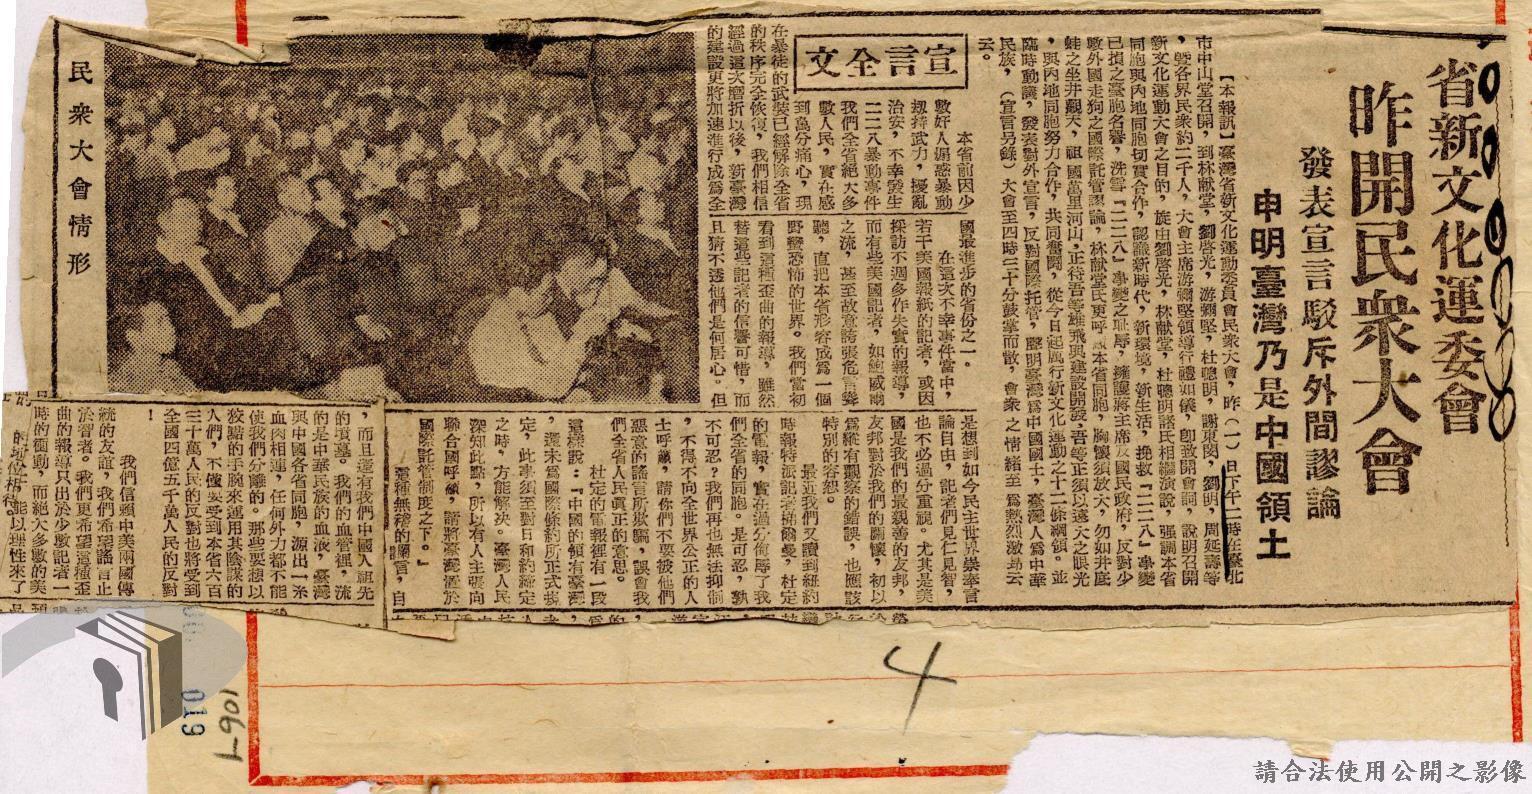 省新文化運委會
昨開民衆大會
發表宣言駁斥外間謬論
申明臺灣乃是中國領土
【本報訊】臺灣省新文化運動委員會民衆大會,昨(一)日下午二時在臺北
市中山堂召開,到林献堂,劉啓光,游彌堅,杜聰明,謝東閔,劉明,周延壽等
,曁各界民衆約二千人,大會主席游彌堅領導行禮如儀,即致開會詞,說明召開
新文化運動大會之目的,旋由劉啓光,林献堂,杜聰明諸氏相繼演說,强調本省
同胞與內地同胞切實合作,認識新時代,新環境,新生活,挽救『二二八』事變
已損之臺胞名譽,洗雪『二二八』事變之耻辱,擁護蔣主席及國民政府,反對少
數外國走狗之國際託管謬論,林献堂氏更呼 本省同胞,胸懷須放大,勿如井底
蛙之坐井觀天,祖國萬里河山,正待吾等雄飛與建設開發,吾等正須以遠大之眼光
,與內地同胞努力合作,共同奮鬪,從今日起厲行新文化運動之十二條綱領。並
臨時動議,發表對外宣言,反對國際托管,聲明臺灣爲中國國土,臺灣人爲中華
民族,(宣言另錄)大會至四時三十分鼓掌而散,會衆之情緒至爲熱烈激昂云
云。
宣言全文
本省前因少
數奸人煽惑暴動
刼持武力,擾亂
治安,不幸發生
二二八暴動事件
我們全省絕大多
數人民,實在感
到萬分痛心,現
在暴徒的武裝已經解除全省
的秩序完全恢復,我們相信
經過這次磨折以後,新臺灣
的建設更將加速進行成爲全
國最進步的省份之一。
在這次不幸事件當中,
若干美國報紙的記者,或因
採訪不週多作失實的報導,
而有些美國記者,如鮑威爾
之流,甚至故意誇張危言聳
聽,直把本省形容成爲一個
野蠻恐怖的世界。我們當初
看到這種歪曲的報導,雖然
替這些記者的信譽可惜,而
且猜不透他們是何居心。但
是想到如今民主世界崇奉言
論自由,記者們見仁見智,
也不必過分重視。尤其是美
國是我們的最親善的友邦,
友邦對於我們的關懷,初以
爲縱有觀察的錯誤,也應該
特別的容恕。
最近我們又讀到紐約
時報特派記者梯爾曼,杜定
的電報,實在過分侮辱了我
們全省的同胞。是可忍,孰
不可忍?我們再也無法抑制
,不得不向全世界公正的人
士呼籲,請你們不要被他們
惡意的謠言所欺騙,誤會我
們全省人民眞正的意思。
杜定的電報裡有一段
這樣說:『中國的領有臺灣
,還未爲國際條約所正式規
定,此事須至對日和約締定
之時,方能解決。臺灣人民
深知此點,所以有人主張向
聯合國呼籲,請將臺灣置於
國際託管制度之下。』
這種無稽的讕言,自
,而且還有我們中國人祖先
的墳墓。我們的血管裡,流
的是中華民族的血液,臺灣
與中國各省同胞,源出一系
血肉相連,任何外力都不能
使我們分離的。那些要想以
狡黠的手腕來運用其陰謀的
人們,不僅要受到本省六百
三十萬人民的反對也將受到
全國四億五千萬人民的反對
!
我們信賴中美兩國傳
統的友誼,我們希望謠言止
於智者。我們更希望這種歪
曲的報導只出於少數記者一
時的衝動,而絕大多數的美
能以理性來了
民衆大會情形
4
019
L901
請合法使用公開之影像